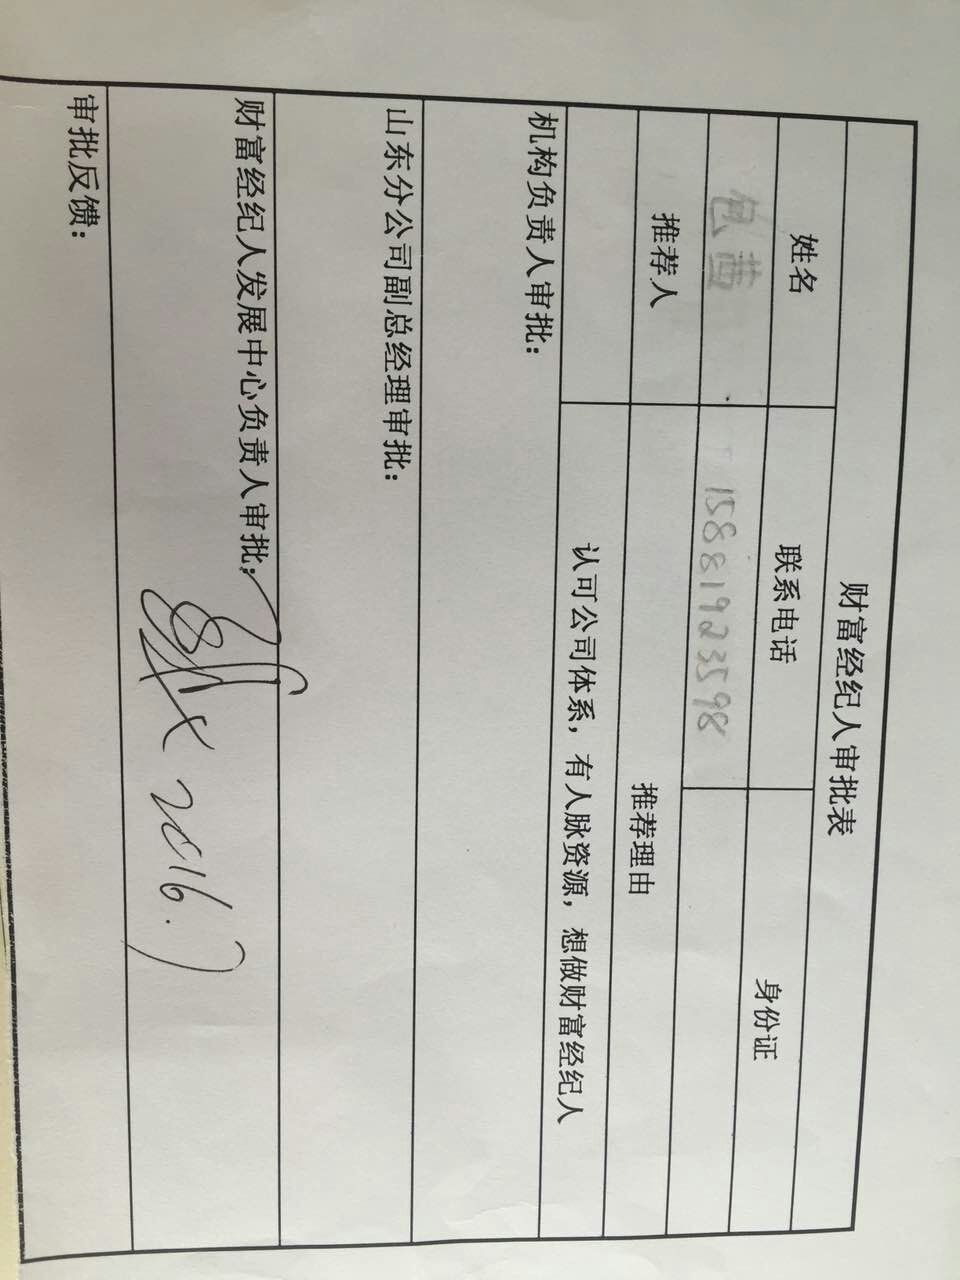 财富经纪人审批表
姓名 联系电话 身份证
包茜 15881923598
推荐人 推荐理由
认可公司体系，有人脉资源，想做财富经纪人
机构负责人审批：
山东分公司副总经理审批：
财富经纪人发展中心负责人审批：
2016.7
审批反馈：